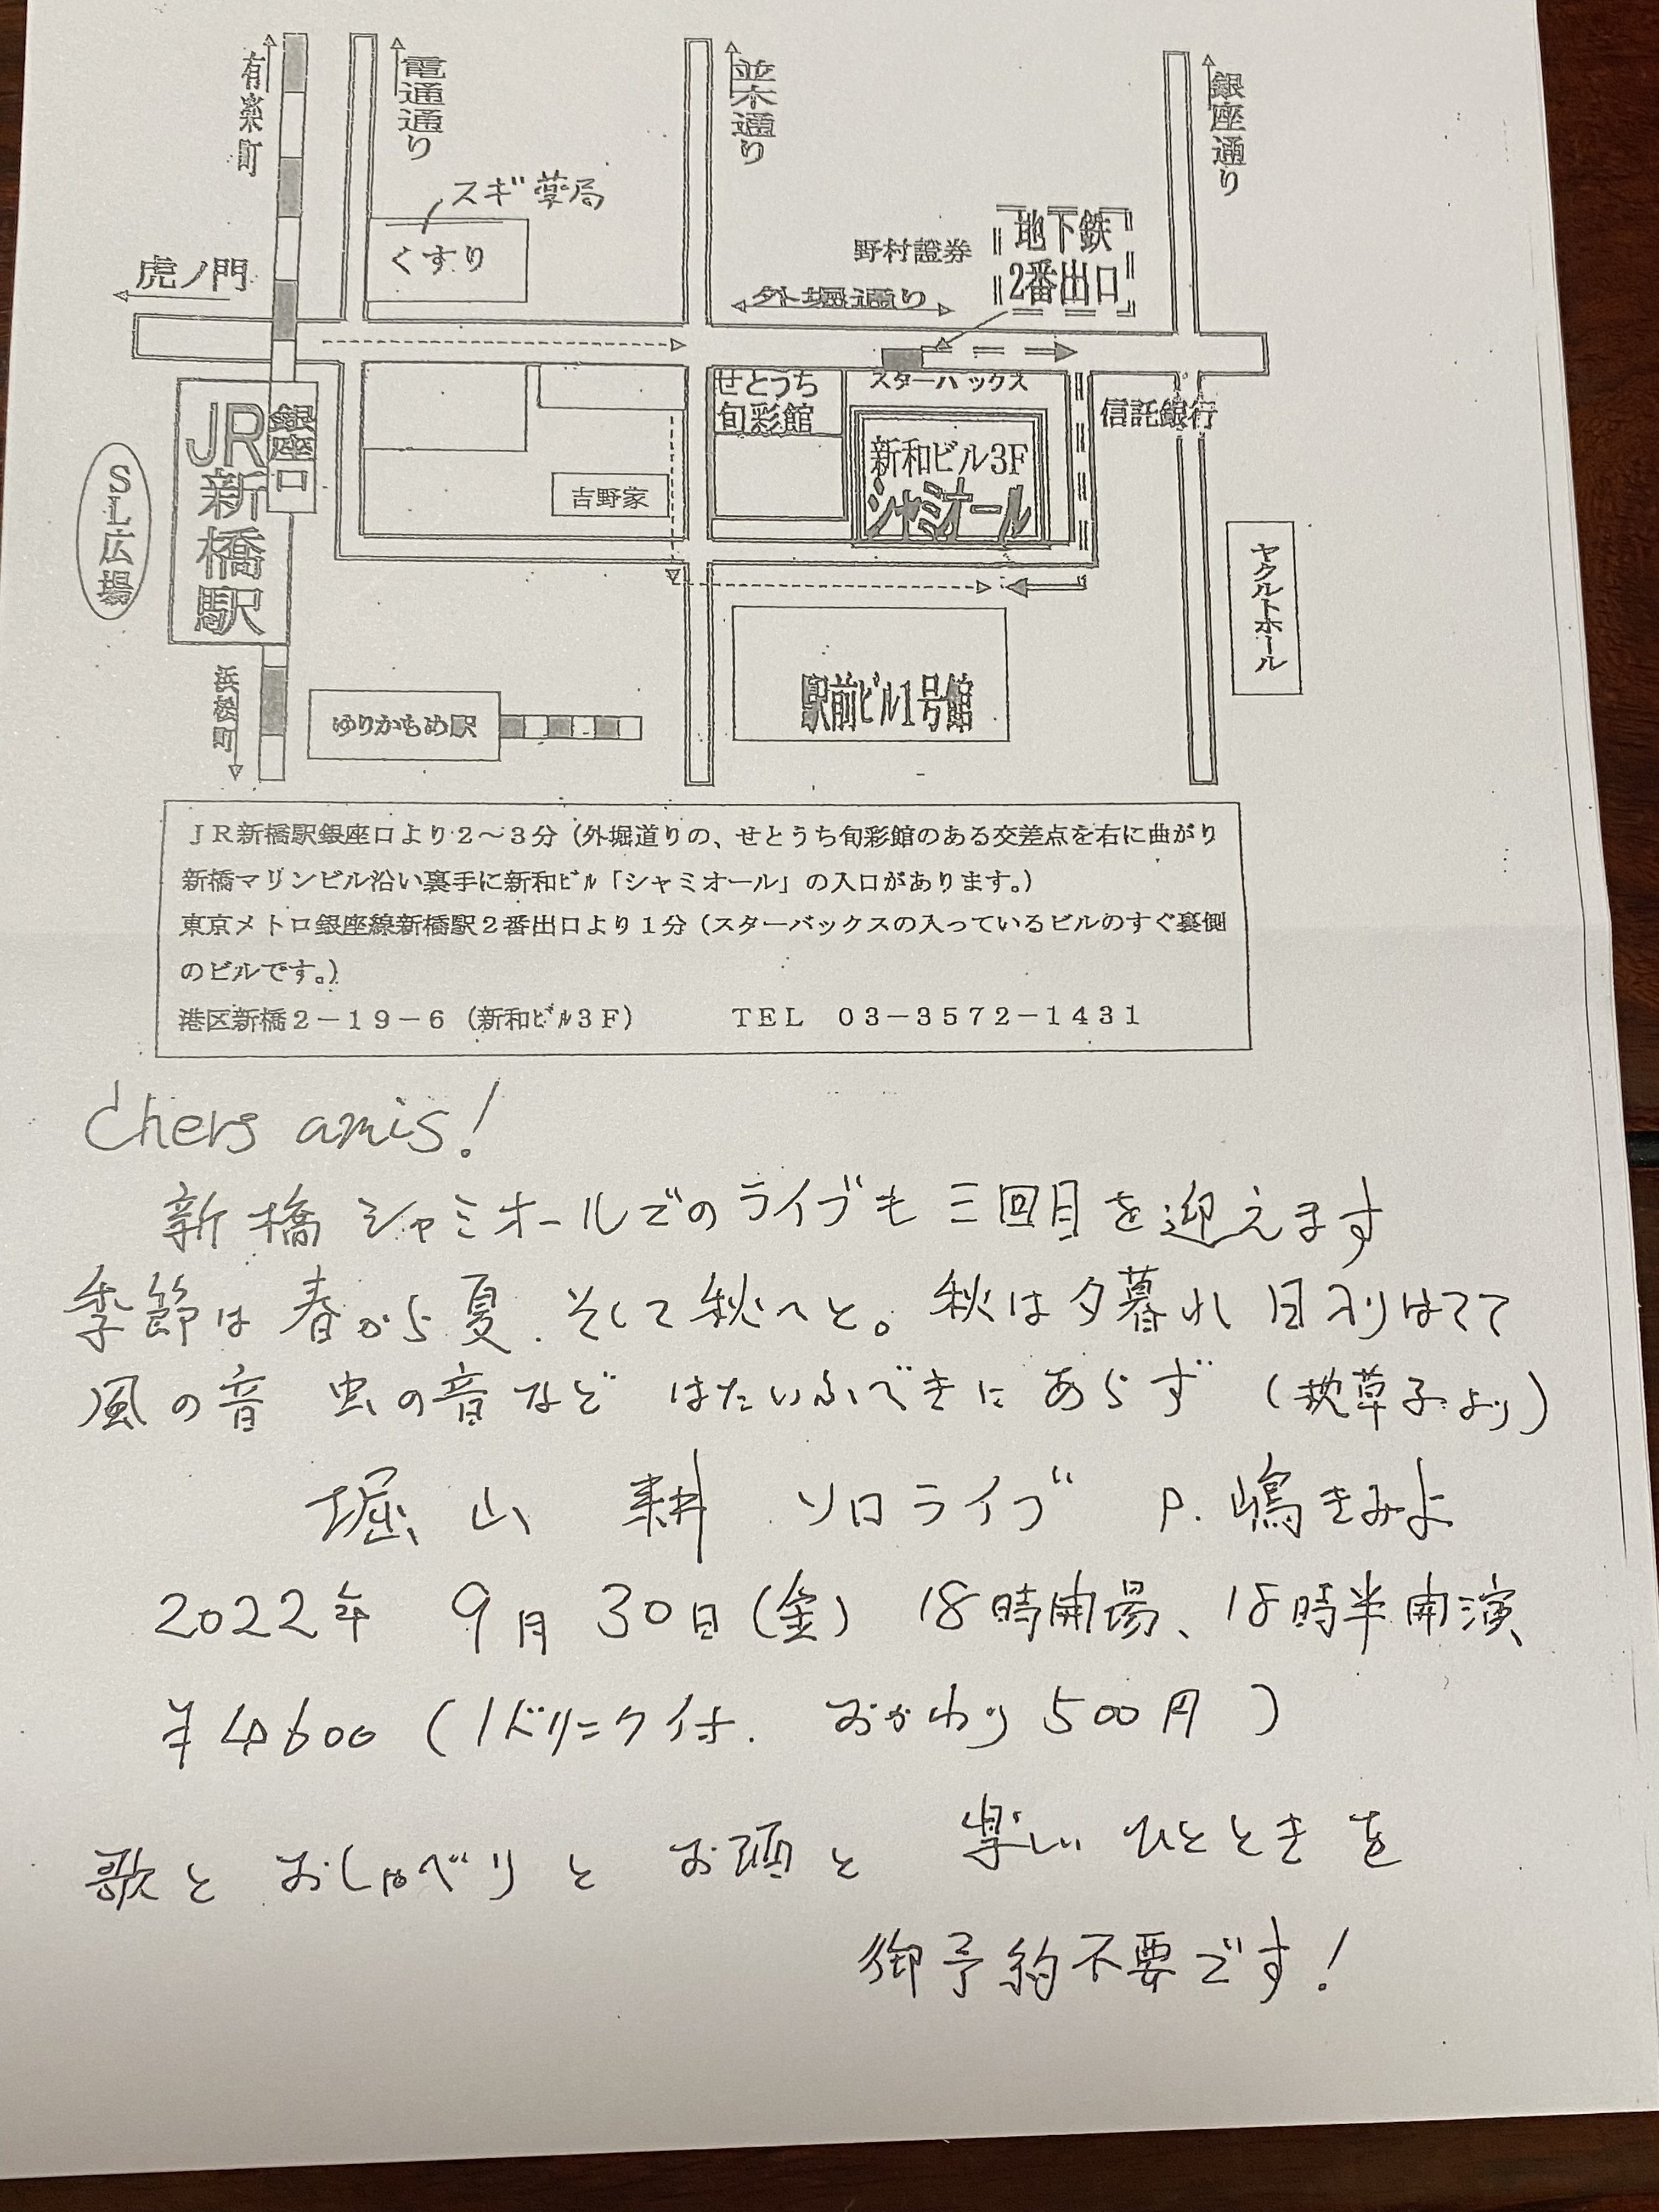 有楽町
電通通り
並木通り
銀座通り
スギ薬局
くすり
野村證券
地下鉄
2番出口
虎ノ門
外堀通り
せとうち
旬彩館
スターバックス
信託銀行
JR新橋駅
銀座口
SL広場
吉野家
新和ビル3F
シャミオール
ヤクルトホール
浜松町
ゆりかもめ駅
駅前ビル1号館
ＪＲ新橋駅銀座口より２～３分（外堀道りの、せとうち旬彩館のある交差点を右に曲がり
新橋マリンビル沿い裏手に新和ﾋﾞﾙ「シャミオール」の入口があります。）
東京メトロ銀座線新橋駅２番出口より１分（スターバックスの入っているビルのすぐ裏側
のビルです。）
港区新橋２－１９－６（新和ﾋﾞﾙ３Ｆ） ＴＥＬ ０３－３５７２－１４３１
Chers amis!
新橋シャミオールでのライブも三回目を迎えます
季節は春から夏.そして秋へと。秋は夕暮れ 日入りはてて
風の音 虫の音など はたいふべきにあらず（枕草子より）
堀山 耕 ソロライブ P.嶋きみよ
2022年 9月30日(金) 18時開場、18時半開演
¥4600（1ドリンク付. おかわり500円）
歌とおしゃべりとお酒と 楽しいひとときを
御予約不要です!